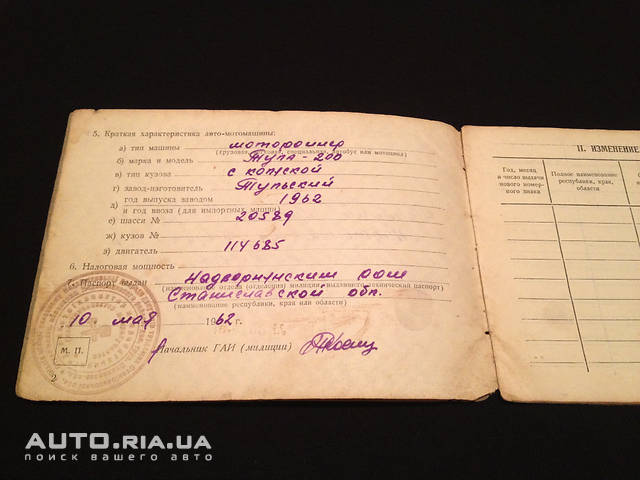 5. Краткая характеристика авто-мотомашины:
а) тип машины мотороллер
(грузовая, легковая, специальная, автобус или мотоцикл)
б) марка и модель Тула-200
в) тип кузова с коляской
г) завод-изготовитель Тульский
д) год выпуска заводом 1962
и год ввоза (для импортных машин)
е) шасси № 20589
ж) кузов №
з) двигатель 114685
6. Налоговая мощность
7. Паспорт выдан Надворнунским РОМ
(наименование отдела (отделения) милиции, выдавшего технический паспорт)
Станиславской обл.
(наименование республики, края или области)
10 мая 1962 г.
М. П.
Начальник ГАИ (милиции)
2
II. ИЗМЕНЕНИЕ
Год, месяц
и число выдачи
нового номер-
ного знака
Полное наименование
республики, края,
области
AUTO.RIA.UA
поиск вашего авто